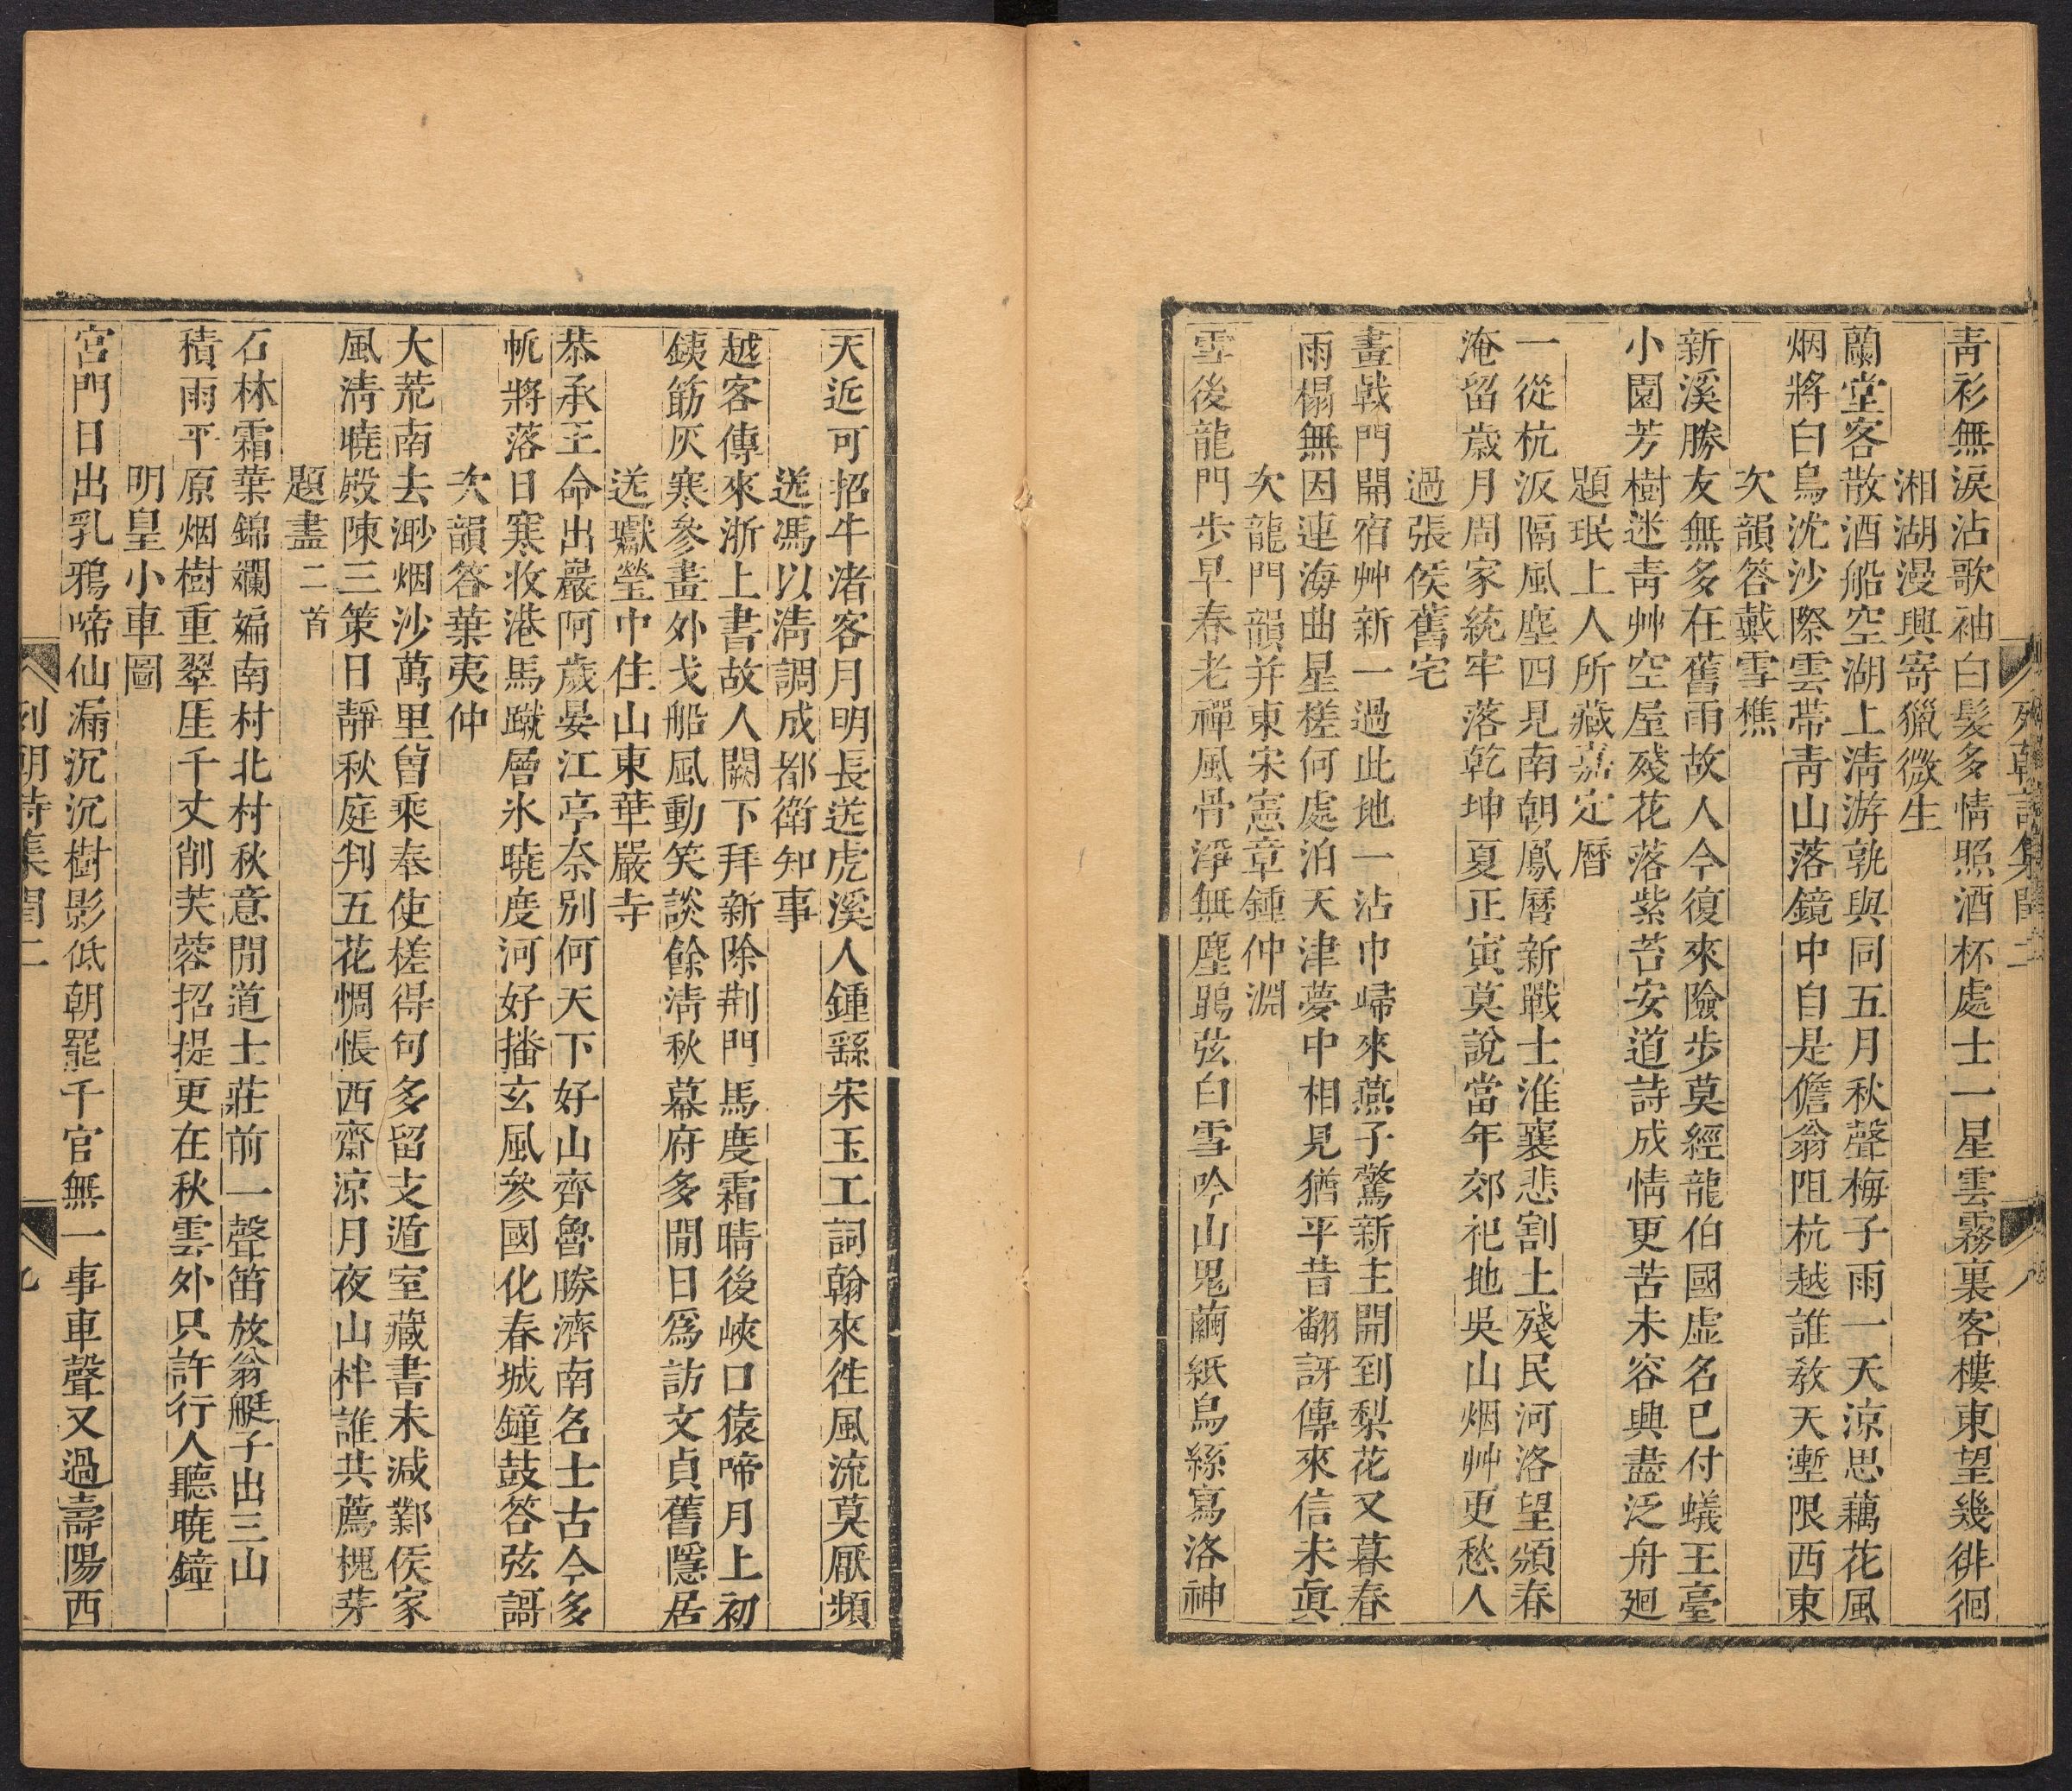 列朝詩集閏二
青衫無淚沾歌袖白髮多情照酒杯處士一星雲霧裏客樓東望幾徘徊
湘湖漫興寄獵微生
蘭堂客散酒船空湖上清游孰與同五月秋聲梅子雨一天涼思藕花風
烟將白鳥沈沙際雲帶青山落鏡中自是儋翁阻杭越誰教天塹限西東
次韻答戴雪樵
新溪勝友無多在舊雨故人今復來險步莫經龍伯國虛名已付蟻王臺
小園芳樹迷青艸空屋殘花落紫苔安道詩成情更苦未容興盡泛舟廻
題珉上人所藏嘉定曆
一從杭汳隔風塵四見南朝鳳曆新戰士淮襄悲割土殘民河洛望頒春
淹留歲月周家統牢落乾坤夏正寅莫說當年郊祀地吳山烟艸更愁人
過張侯舊宅
畫戟門開宿艸新一過此地一沾巾歸來燕子驚新主開到梨花又暮春
雨榻無因連海曲星槎何處泊天津夢中相見猶平昔翻訝傳來信未眞
次龍門韻并東宋憲章鍾仲淵
雪後龍門步早春老禪風骨淨無塵鵾弦白雪吟山鬼繭紙烏絲寫洛神
天近可招牛渚客月明長送虎溪人鍾繇宋玉工詞翰來徃風流莫厭頻
送馮以清調成都衛知事
越客傳來浙上書故人闕下拜新除荆門馬度霜晴後峽口猿啼月上初
鋏筯灰寒參畫外戈船風動笑談餘清秋幕府多閒日爲訪文貞舊隱居
送瓛瑩中住山東華嚴寺
恭承王命出嚴阿歲晏江亭奈別何天下好山齊魯勝濟南名士古今多
帆將落日寒收港馬蹴層氷曉度河好播玄風參國化春城鐘鼓答弦謌
次韻答葉夷仲
大荒南去渺烟沙萬里曾乘奉使槎得句多留支遁室藏書未減鄴侯家
風清曉殿陳三策日靜秋庭判五花惆悵西齋涼月夜山柈誰共薦槐芽
題畫二首
石林霜葉錦斕斒南村北村秋意閒道士莊前一聲笛放翁艇子出三山
積雨平原烟樹重翠厓千丈削芙蓉招提更在秋雲外只許行人聽曉鐘
明皇小車圖
宮門日出乳鴉啼仙漏沉沉樹影低朝罷千官無一事車聲又過壽陽西
列朝詩集閏二
九